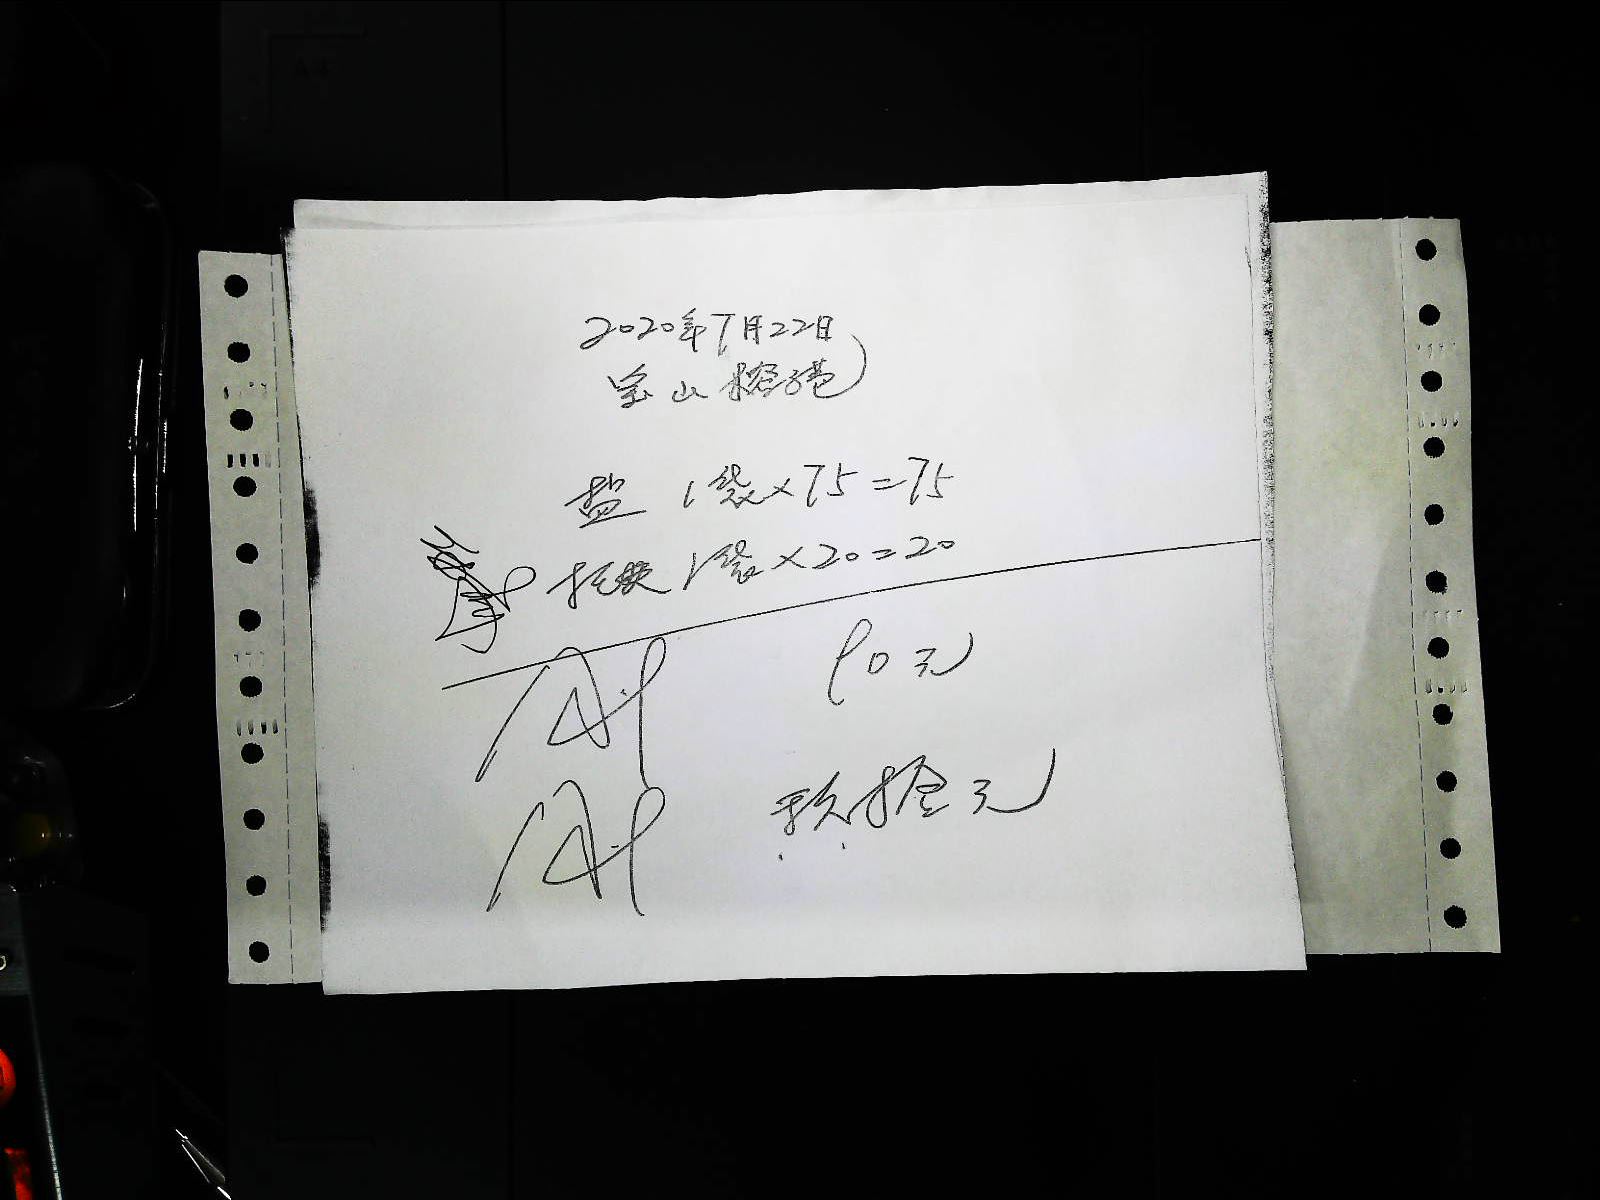 2020年7月22日
宝山榕港
盐 1袋×75=75
1袋×20=20
90元
玖拾元